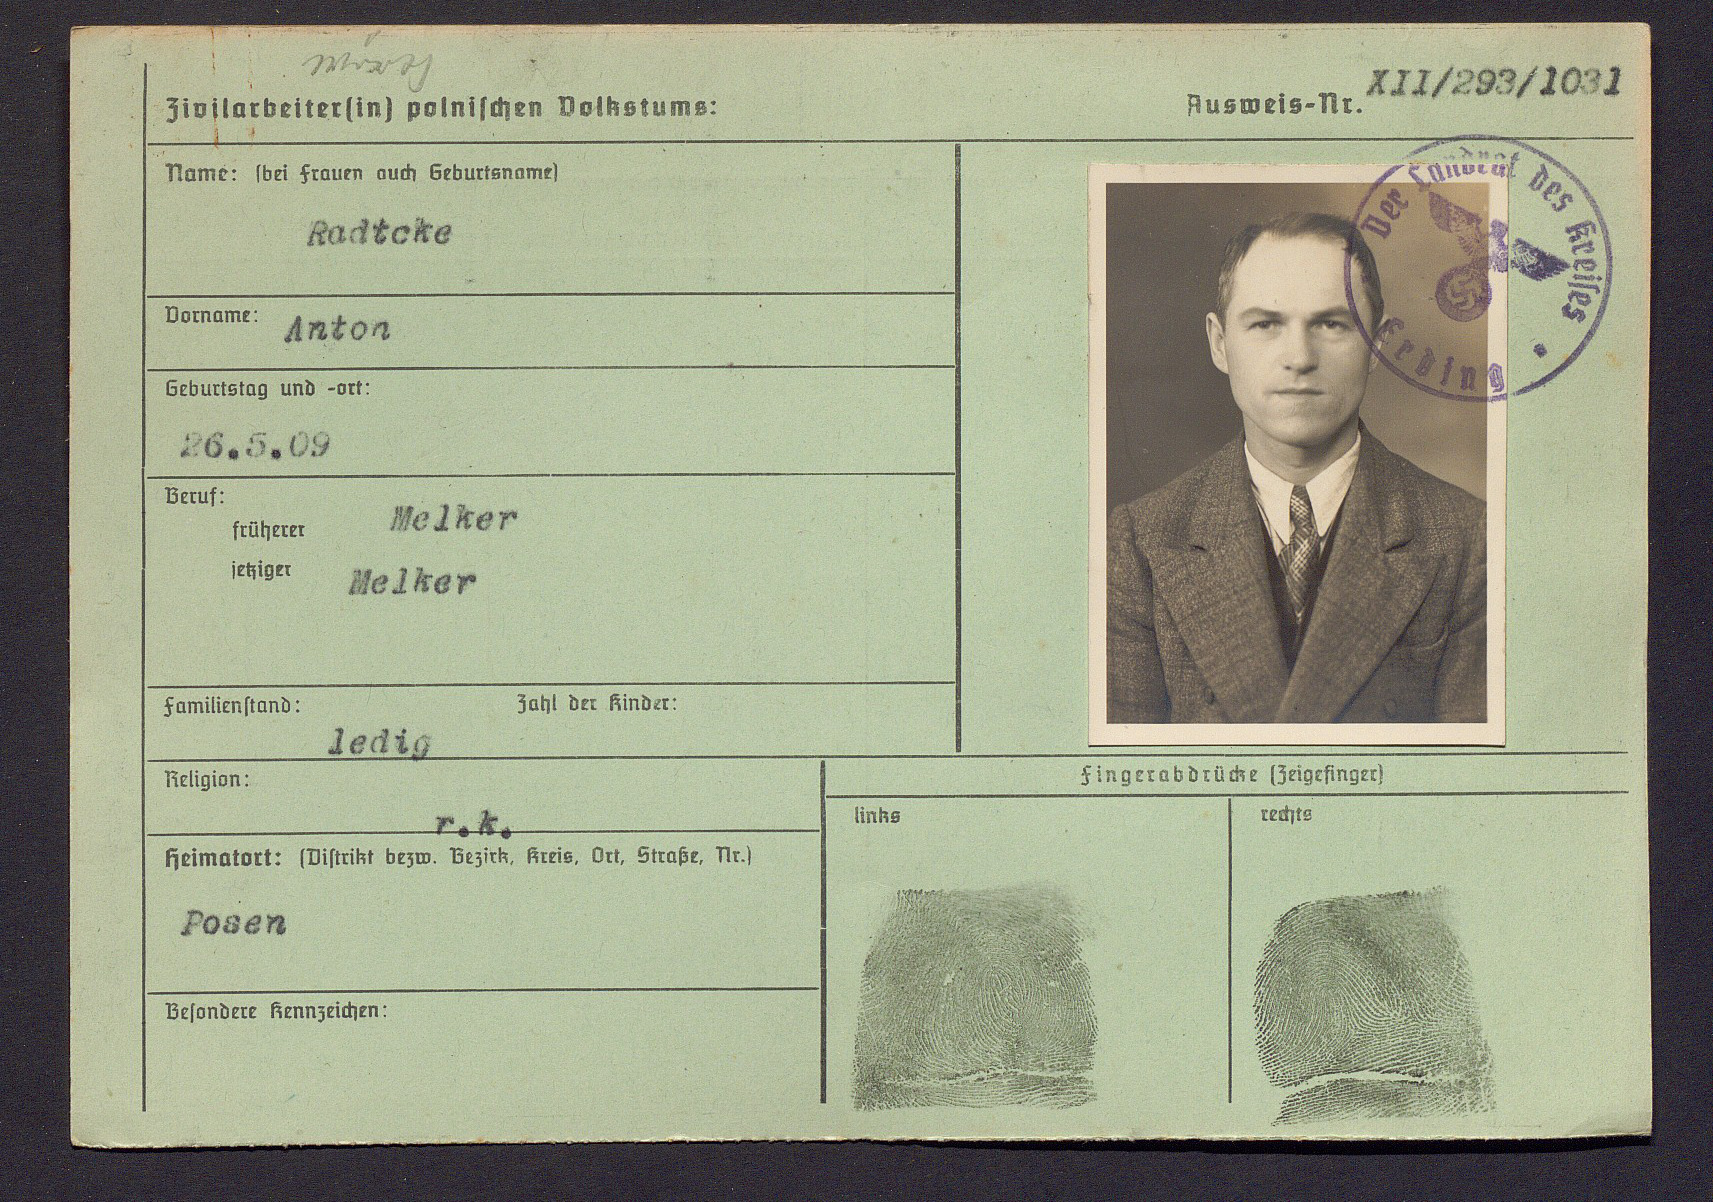 XII/293/1031
Zivilarbeiter(in) polnischen Volkstums:
Ausweis-Nr.
Name: (bei Frauen auch Geburtsname)
Radtcke
Vorname:
Anton
Geburtstag und -ort:
26.5.09
Beruf:
früherer
Melker
jetziger
Melker
Familienstand:
Zahl der Kinder:
ledig
Religion:
r.k.
Heimatort: (Distrikt bezw. Bezirk, Kreis, Ort, Straße, Nr.)
Posen
Besondere Kennzeichen:
Der Landrat des Kreises
Erding
Fingerabdrücke (Zeigefinger)
links
rechts